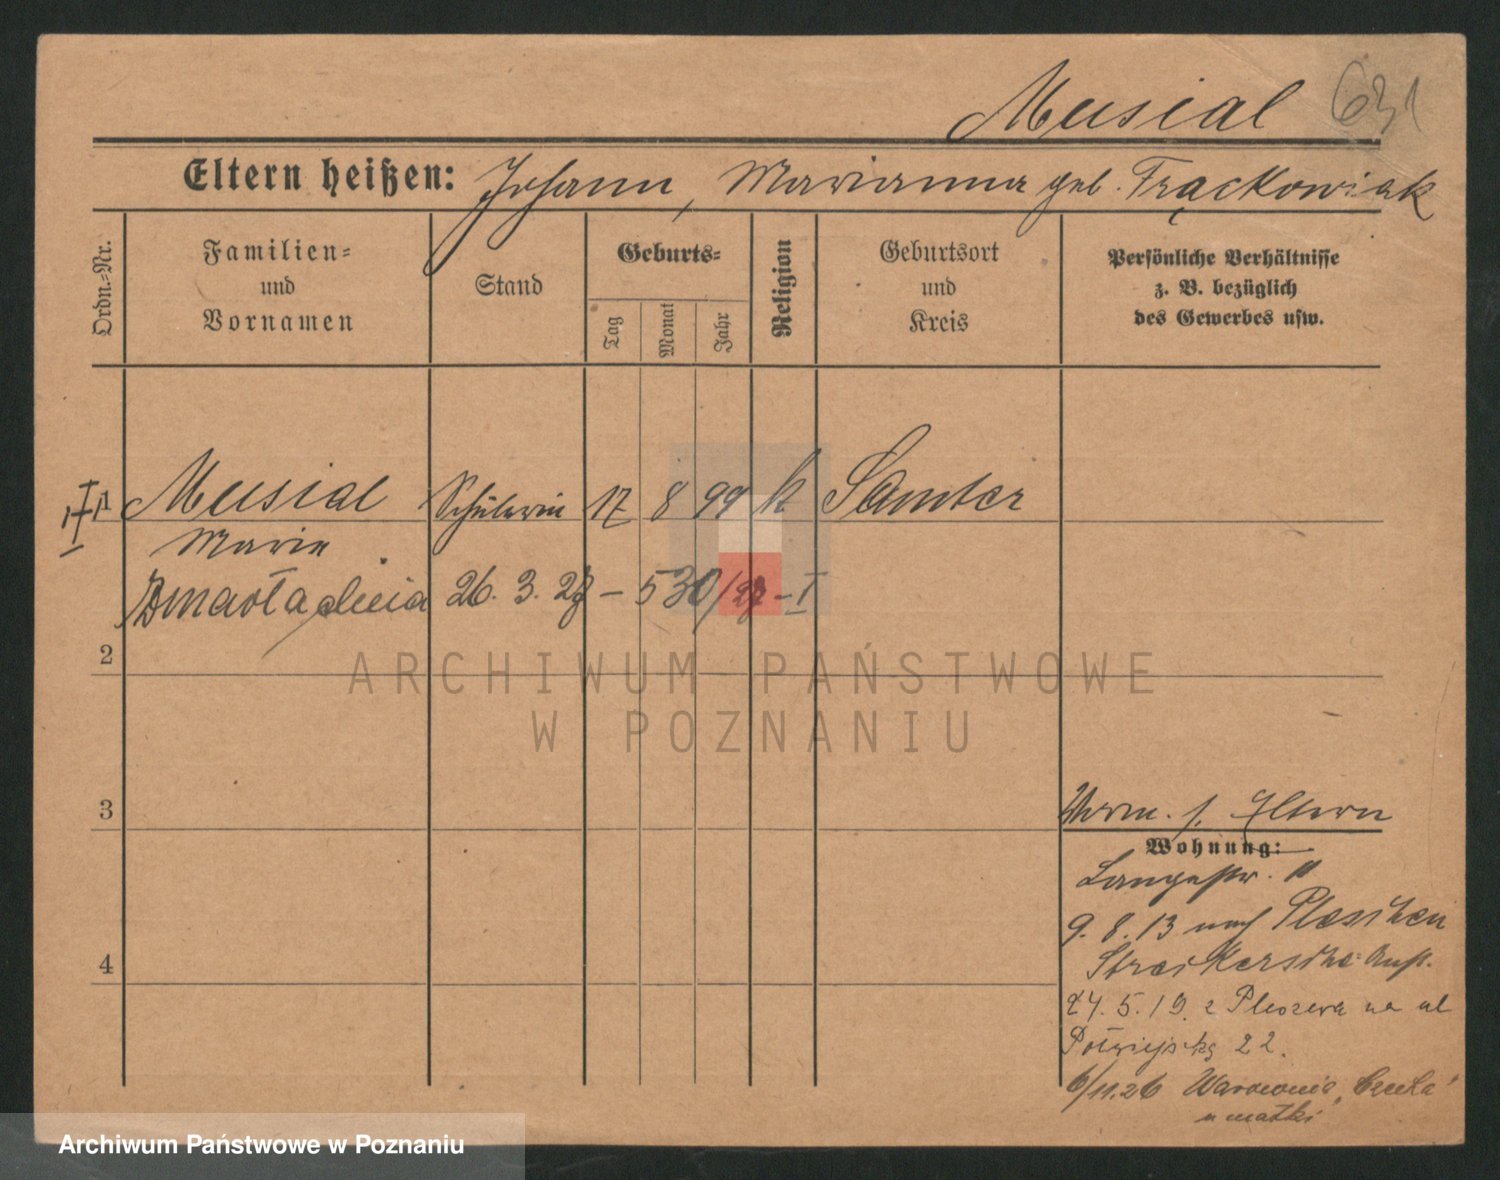 Musial 631
Eltern heißen: Johann, Marianna geb. Frąckowiak
Ordn.-Nr.
Familien-
und
Vornamen
Stand
Geburts-
Tag
Monat
Jahr
Religion
Geburtsort
und
Kreis
Persönliche Verhältnisse
z. B. bezüglich
des Gewerbes usw.
Musial Schülerin 17 8 99 k Samter
Marie
Zmarła dnia 26. 3. 27 – 530/27 – I
2
ARCHIWUM PAŃSTWOWE
W POZNANIU
3
Eltern
Wohnung:
Langestr. 11
9. 8. 13 nach Pleschen
24. 5. 19. z Pleszewa na ul
Półwiejską 22.
4
6/11.26
u matki
Archiwum Państwowe w Poznaniu